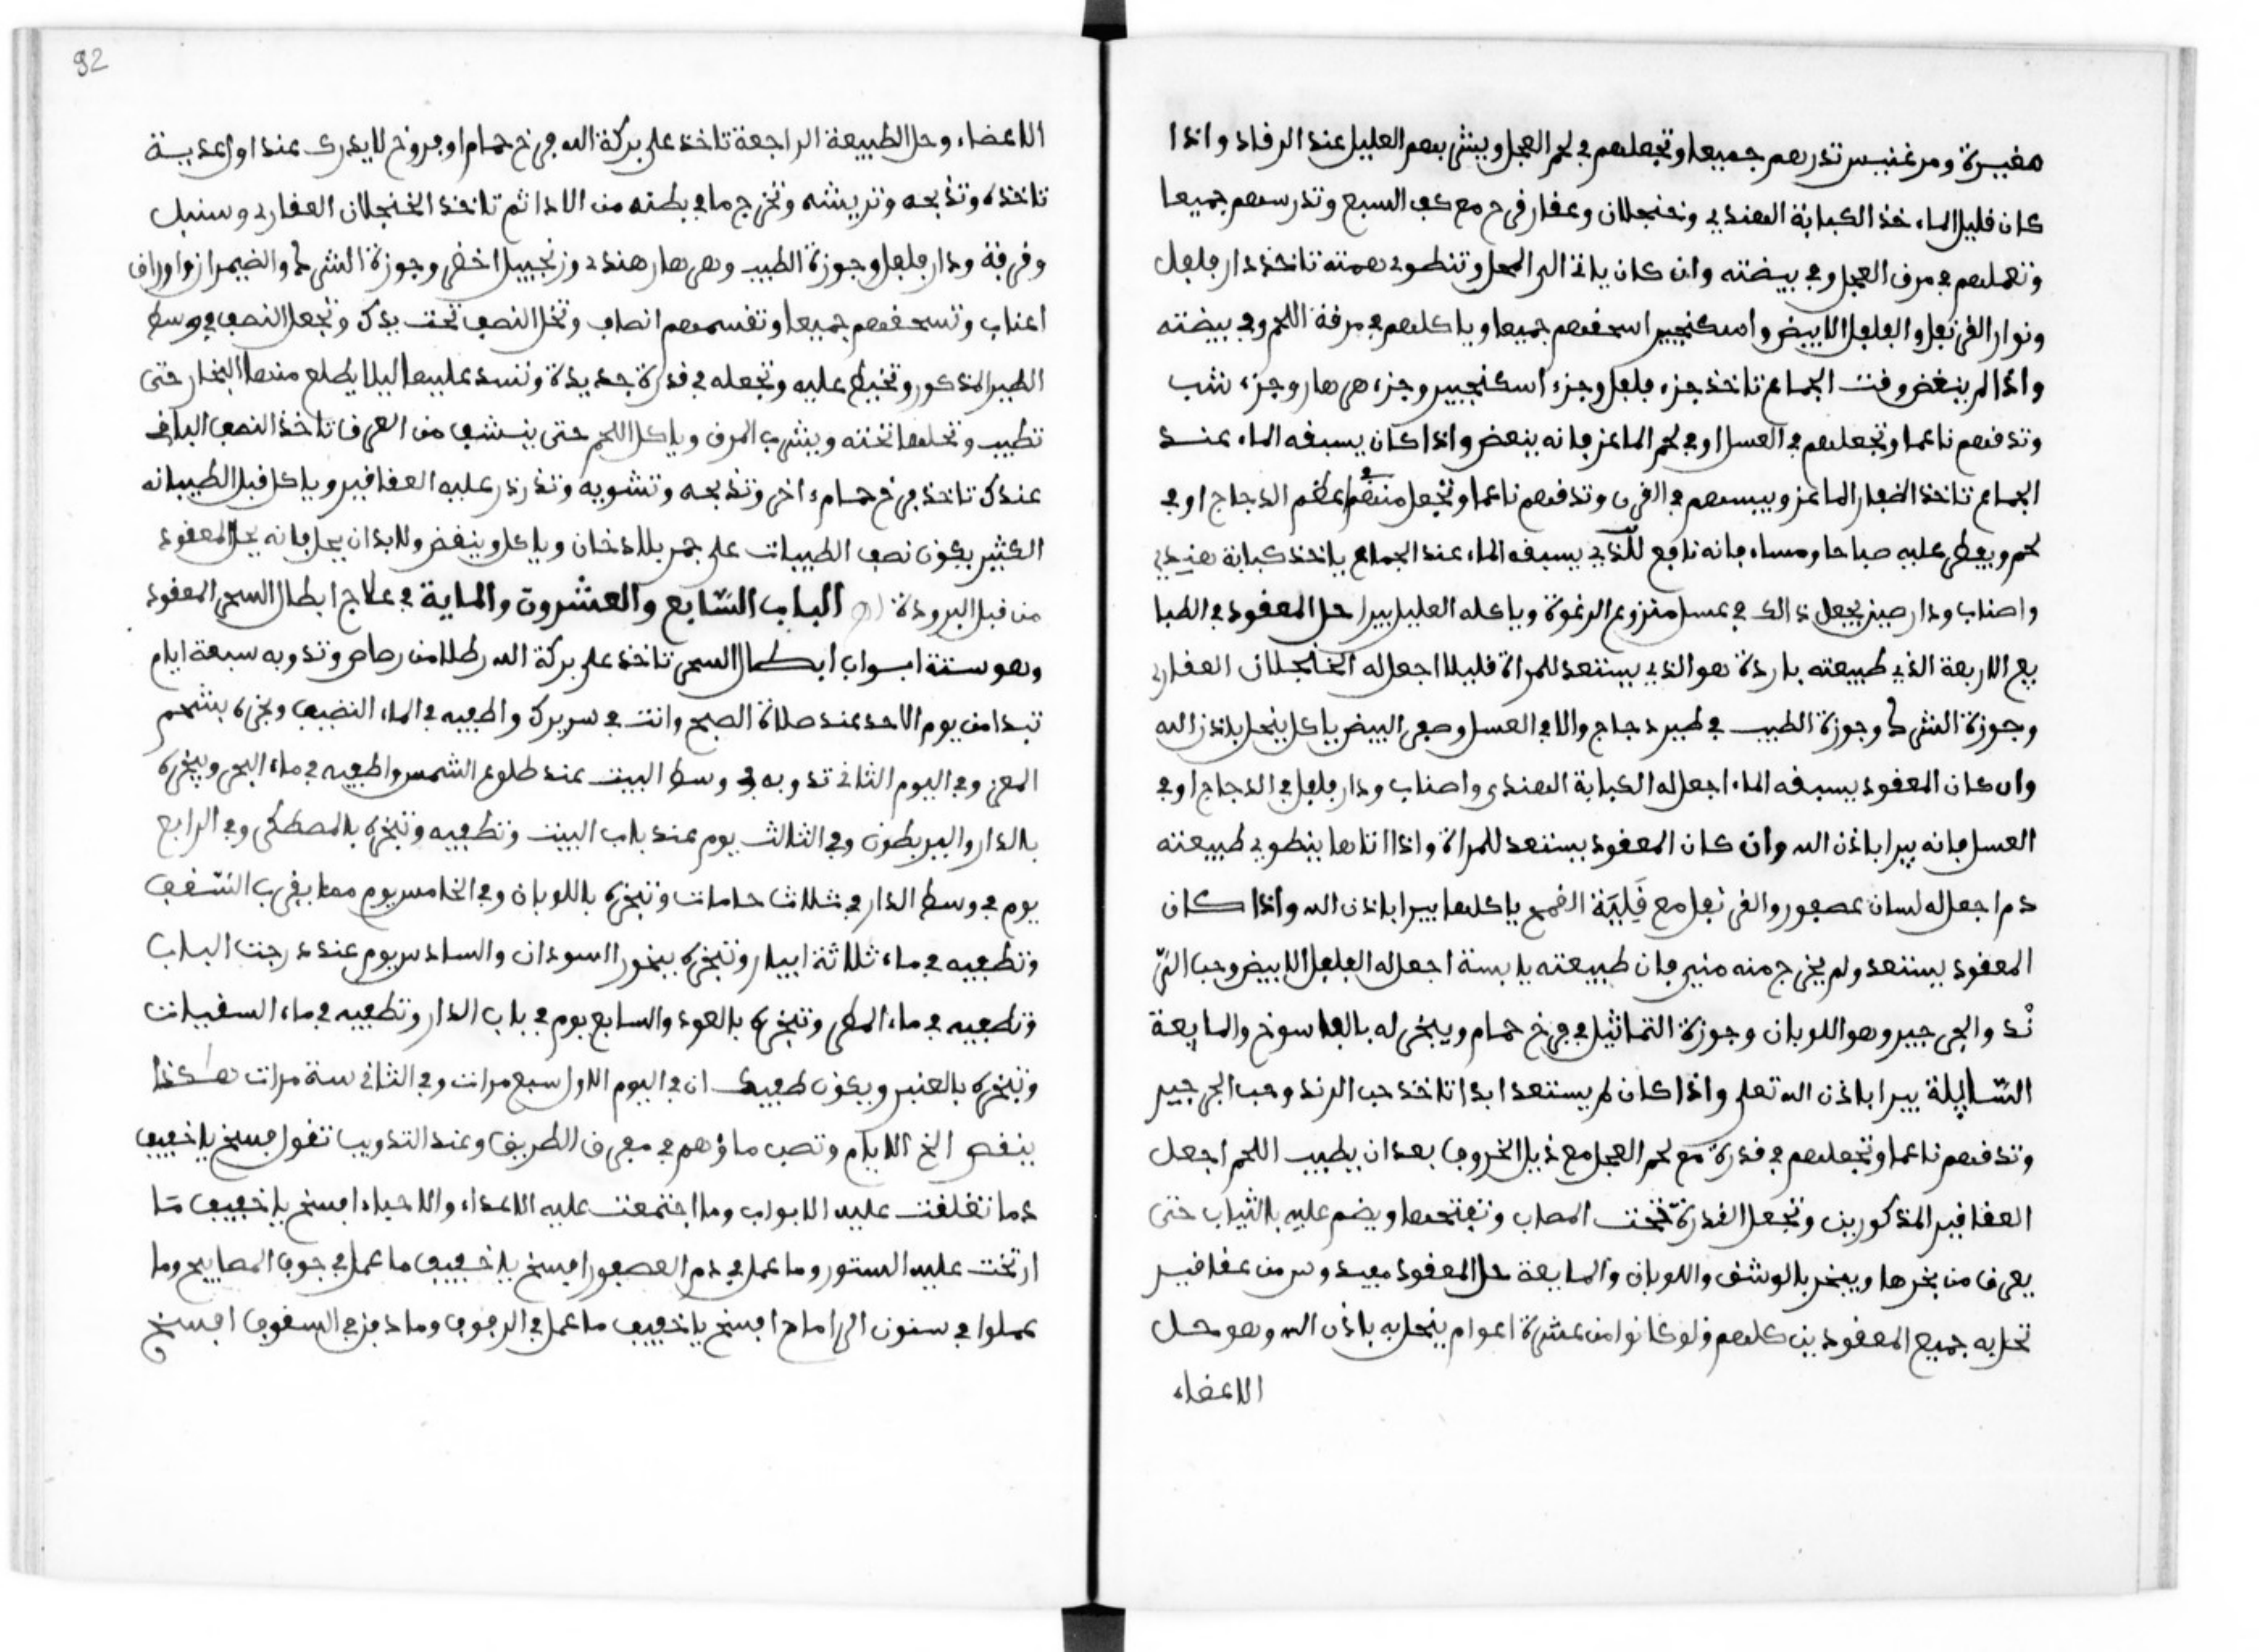 هفيرة ومرغنيس تدرهم جميعا وتجعلهم في لحم العجل ويشربهم العليل عند الرقاد واذا
كان قليل الماء خذ الكبابة الهندي وخنجلان وعقار قرح مع كف السبع وتدرسهم جميعا
وتعملهم في مرق العجل وفي بيضته وان كان ياتي الى المحل وتنطوي همته تاخذ دار فلفل
ونوار القرنفل والفلفل الابيض واسكنجبير اسحقهم جميعا وياكلهم في مرقة اللحم وفي بيضته
واذا لم ينغض وقت الجماع تاخذ جزء فلفل وجزء اسكنجبير وجزء هرهار وجزء شب
وتدقهم ناعما وتجعلهم في العسل او في لحم الماعز فانه ينعض واذا كان يسبقه الماء عند
الجماع تاخذ اظفار الماعز وييبسهم في الفرن وتدقهم ناعما وتجعل منهم في عظم الدجاج او في
لحم ويفطر عليه صباحا ومساء فانه نافع للذي يسبقه الماء عند الجماع ياخذ كبابة هندي
واصناب ودار صيني يجعل ذالك في عسل منزوع الرغوة وياكله العليل يبرا حل المعقود في الطبا
يع الاربعة الذي طبيعته باردة هو الذي يستعد للمراة قليلا اجعل له الخنجلان العقاري
وجوزة الشرك وجوزة الطيب في طير دجاج والا في العسل وصفر البيض ياكل ينحل باذن الله
وان كان المعقود يسبقه الماء اجعل له الكبابة الهندي واصناب ودار فلفل في الدجاج او في
العسل فانه يبرا باذن الله وان كان المعقود يستعد للمراة واذا اتاها ينطوي طبيعته
دم اجعل له لسان عصفور والقرنفل مع قلية القمح ياكلها يبرا باذن الله واذا كان
المعقود يستعد ولم يخرج منه مني فان طبيعته يابسة اجعل له الفلفل الابيض وحب الر
ند والجرجير وهو اللوبان وجوزة التماثيل في فرخ حمام ويبخر له بالفاسوخ والمايعة
السايلة يبرا باذن الله تعلى واذا كان لم يستعد ابدا تاخذ حب الرند وحب الجرجير
وتدقهم ناعما وتجعلهم في قدرة مع لحم العجل مع ذيل الخروف بعد ان يطيب اللحم اجعل
العقاقير المذكورين وتجعل القدرة تحت المصاب وتفتحها ويضم عليه بالثياب حتى
يعرق من بخرها ويبخر بالوشق واللوبان والمايعة حل المعقود مفيد وسر من عقاقير
تحل به جميع المعقودين كلهم ولو كانوا من عشرة اعوام ينحل به باذن الله وهو محل
الاعضاء
92
الاعضاء وحل الطبيعة الراجعة تاخذ على بركة الله فرخ حمام او فروخ لايدرك عند او عدية
تاخذه وتذبحه وتريشه وتخرج ما في بطنه من الاذا ثم تاخذ الخنجلان العقاري وسنبل
وقرفة ودار فلفل وجوزة الطيب وهرهار هندي وزنجبيل اخضر وجوزة الشرك والضيمران واوراق
اعناب وتسحقهم جميعا وتقسمهم انصاف وتخل النصف تحت يدك وتجعل النصف في وسط
الطير المذكور وتخيط عليه وتجعله في قدرة جديدة وتسد عليها ليلا يطلع منها البخار حتى
تطيب وتحلها تحته ويشرب المرق وياكل اللحم حتى ينشف من العرق تاخذ النصف الباقي
عندك تاخذ فرخ حمام اخر وتذبحه وتشويه وتذرذر عليه العقاقير وياكل قبل الطيبانه
الكثير يكون نصف الطيبات على جمر بلا دخان وياكل وينفض ولابد ان يحل فانه يحل المعقود
من قبل البرودة اه الباب السابع والعشرون والماية في علاج ابطال السحر المعقود
وهو ستة ابواب ابطال السحر تاخذ على بركة الله رطلا من رصاص وتذوبه سبعة ايام
تبدا من يوم الاحد عند صلاة الصبح وانت في سريرك واطفيه في الماء النضيف وبخره بشحم
المعز وفي اليوم الثاني تذوبه في وسط البيت عند طلوع الشمس واطفيه في ماء البحر ويبخره
بالدار والبربطون وفي الثالث يوم عند باب البيت وتطفيه وتبخره بالمصطكى وفي الرابع
يوم في وسط الدار في ثلاث حامات وتبخره باللوبان وفي الخامس يوم مما يقرب السقف
وتطفيه في ماء ثلاثة ابيار وتبخره ببخور السودان والسادس يوم عند درجت الباب
وتطفيه في ماء المطر وتبخره بالعود والسابع يوم في باب الدار وتطفيه في ماء السقيات
وتبخره بالعنبر ويكون طفيك ان في اليوم الاول سبع مرات وفي الثاني ستة مرات هكذا
ينقص الخ الايام وتصب ماؤهم في مفرق الطريق وعند التذويب تقول افسخ ياخفيف
دما تغلقت عليه الابواب وما اجتمعت عليه الاعداء والاحباء افسخ ياخفيف ما
ارتخت عليه الستور وما عمل في دم العصفور افسخ ياخفيف ما عمل في جوف المصابيح وما
عملوا في سنون الى اماح افسخ ياخفيف ما عمل في الرفوف وما دفن في السقوف افسخ